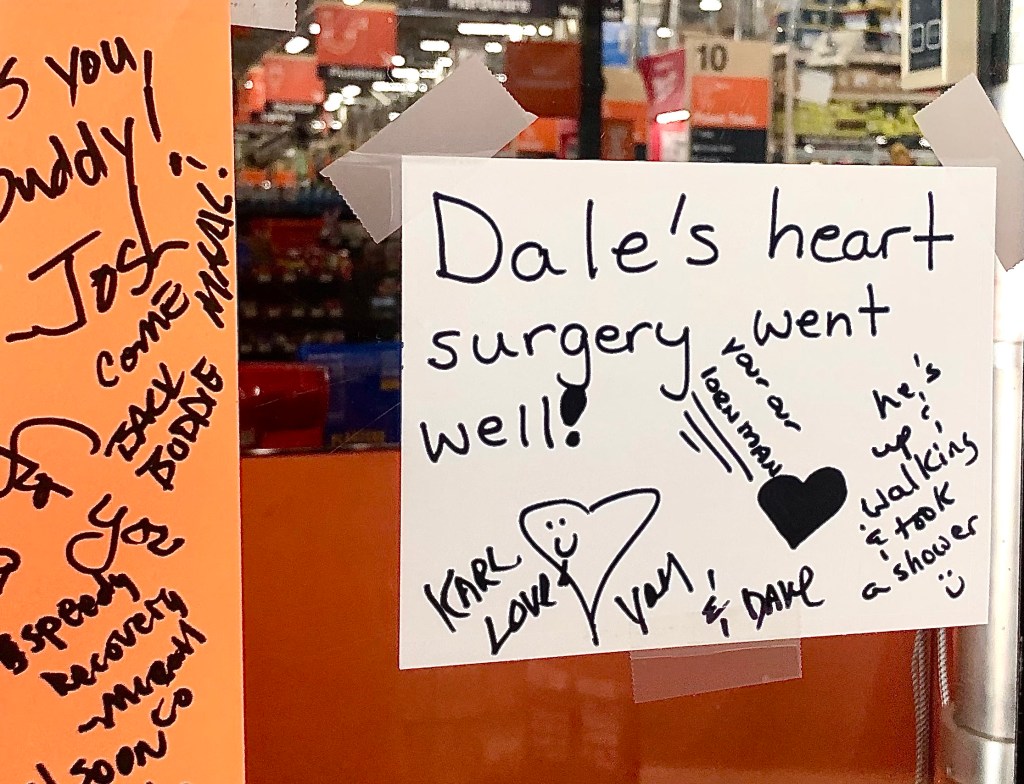 s you
buddy!
Josh
COME
BACK
BUDDIE
MAN!
you
speedy
Recovery
SOON CO
10
Dale's heart
surgery went
well!
your a
iorn MAN
he's
up &
walking
& took
a shower
KARL
LOVE YAH & DAVE